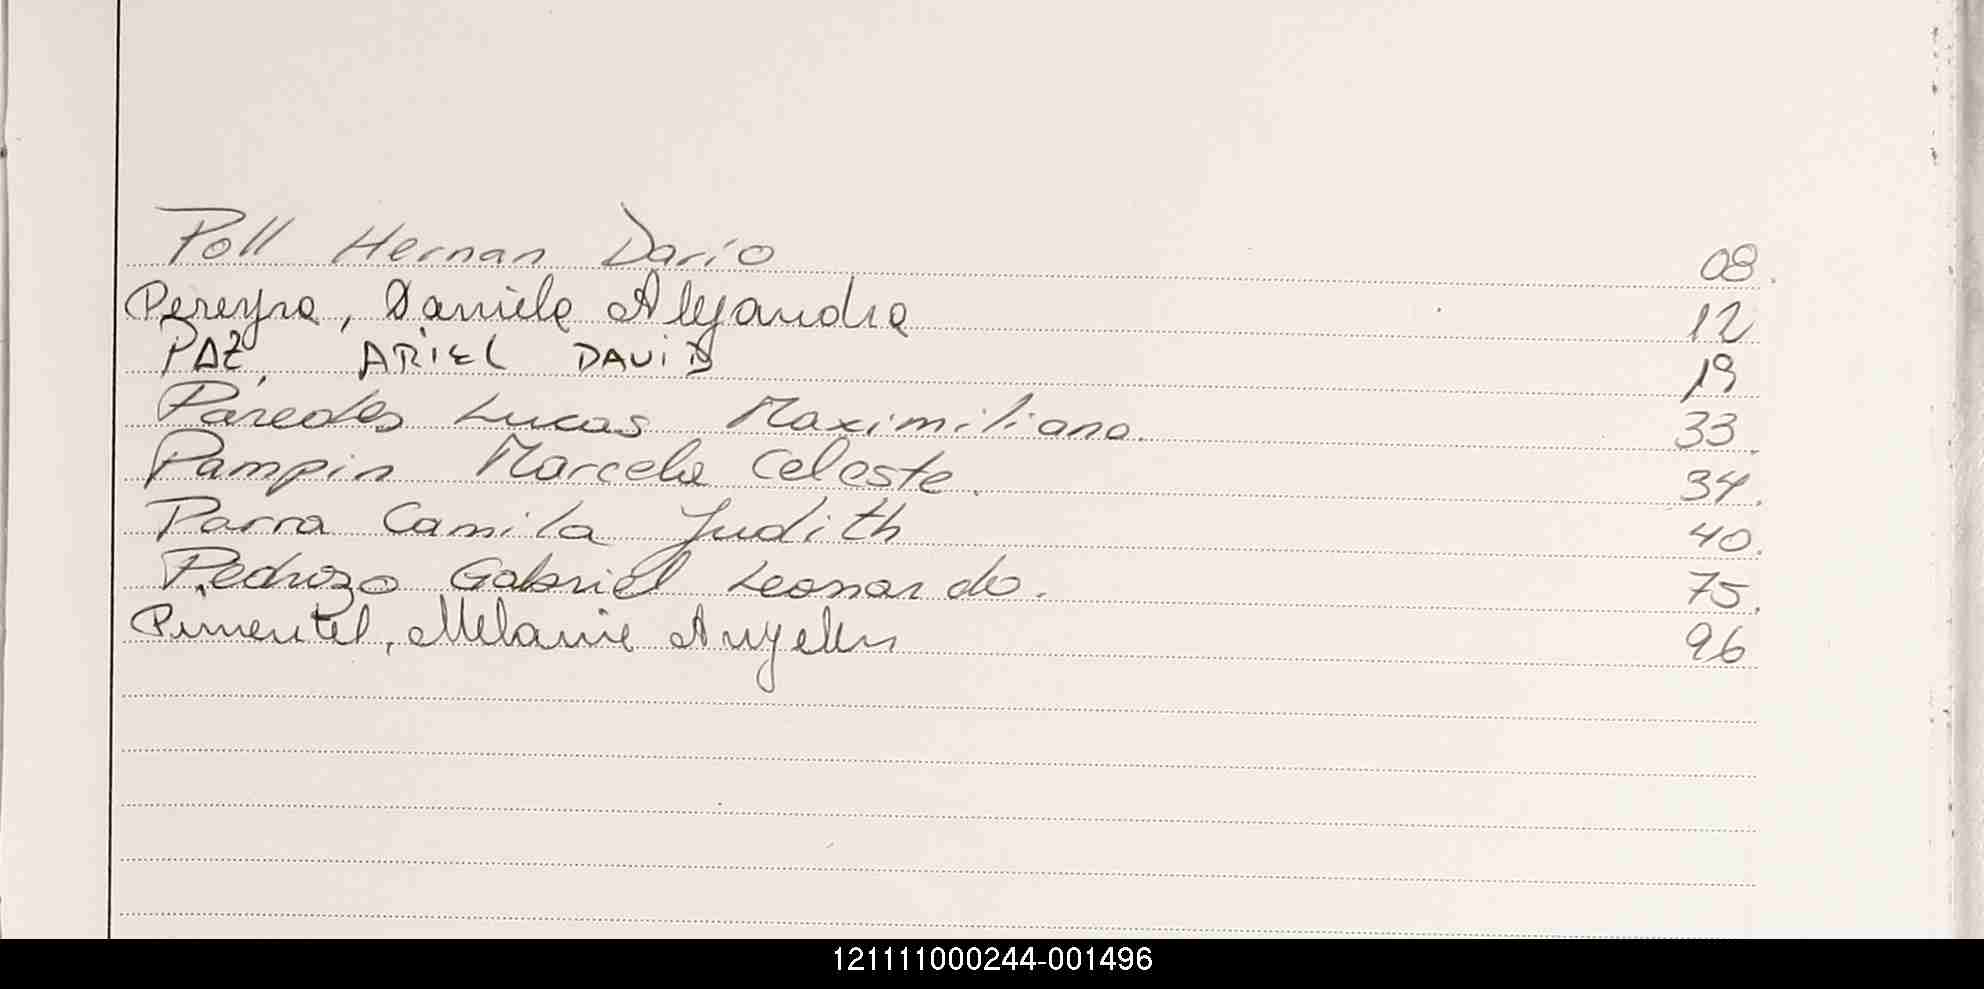 Poll Hernan Darío 08.
Pereyra, Daniela Alejandra 12
PAZ, ARIEL DAVID 19
Paredes Lucas Maximiliano. 33.
Pampin Marcela Celeste. 34.
Parra Camila Judith 40.
Pedrozo Gabriel Leonardo. 75.
Pimentel, Melanie Angeles 96
121111000244-001496